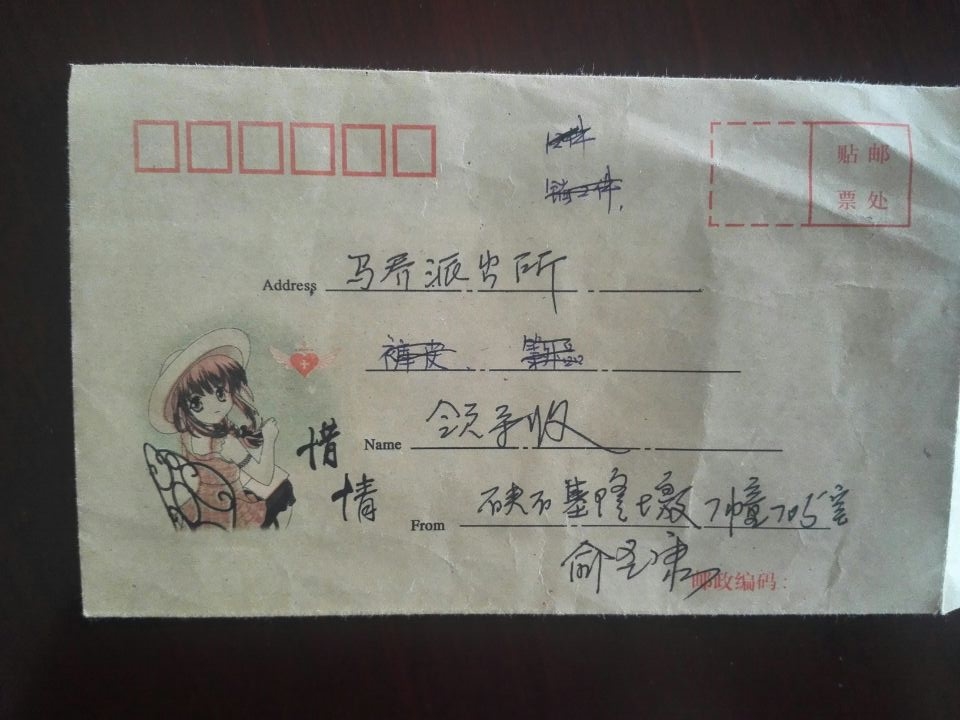 贴 邮
票 处
Address 马乔派出所
裤皮、
Name 领导收
惜
情
From 硖石基隆墩7幢705室
邮政编码：